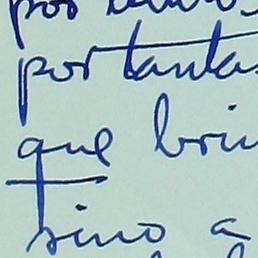 por
por tantas
que brin
sino a